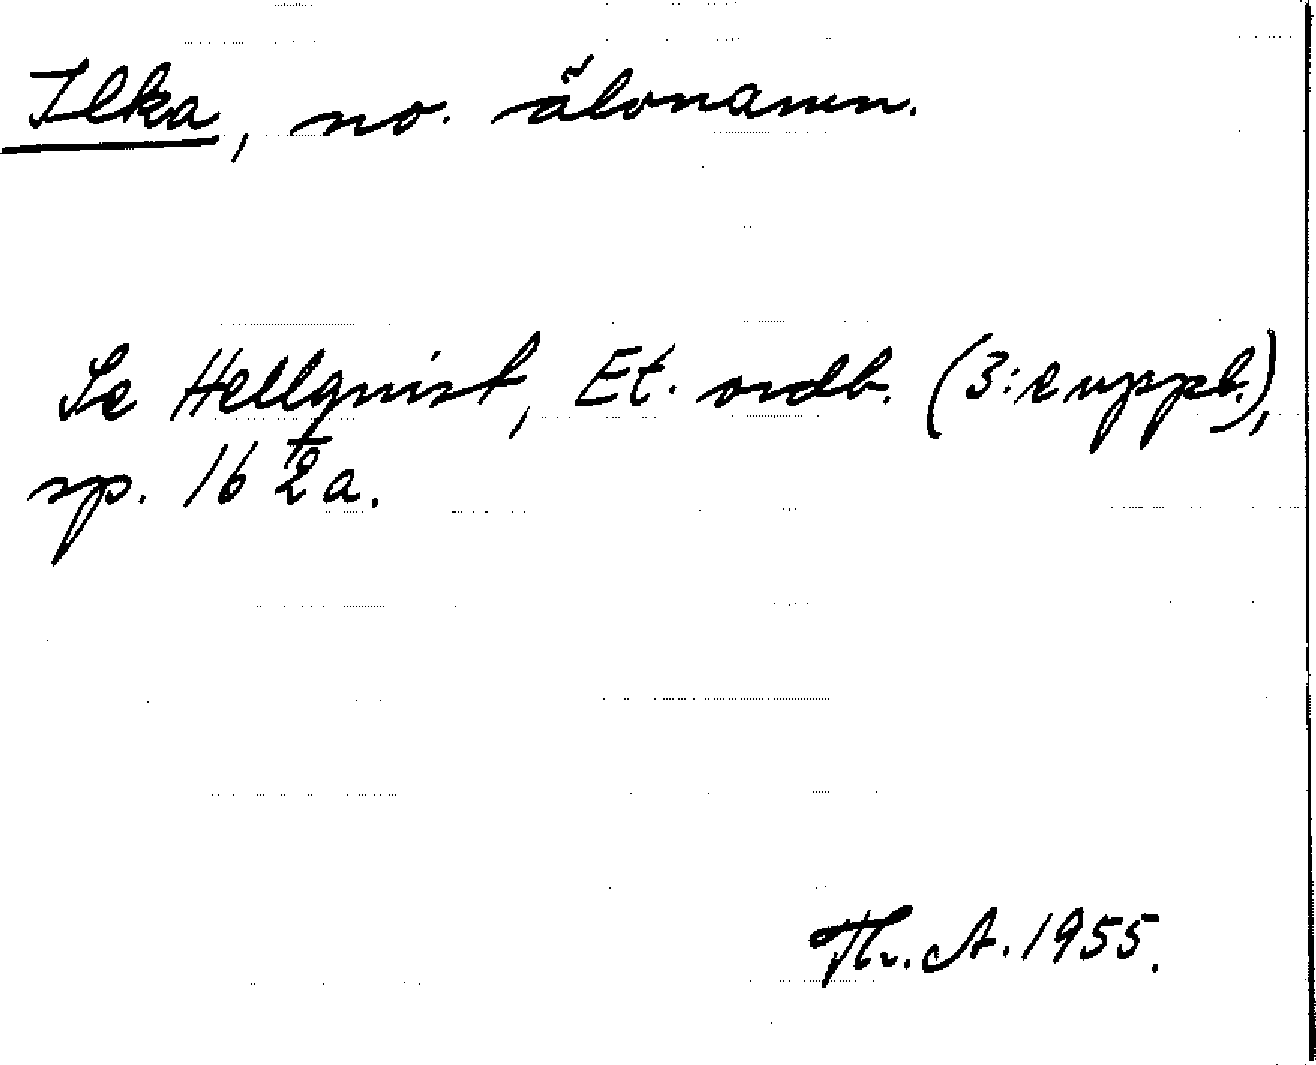 Ilka, no. älvnamn.
Se Hellquist, Et. ordb. (3:e uppl.),
sp. 162a.
Th. A. 1955.